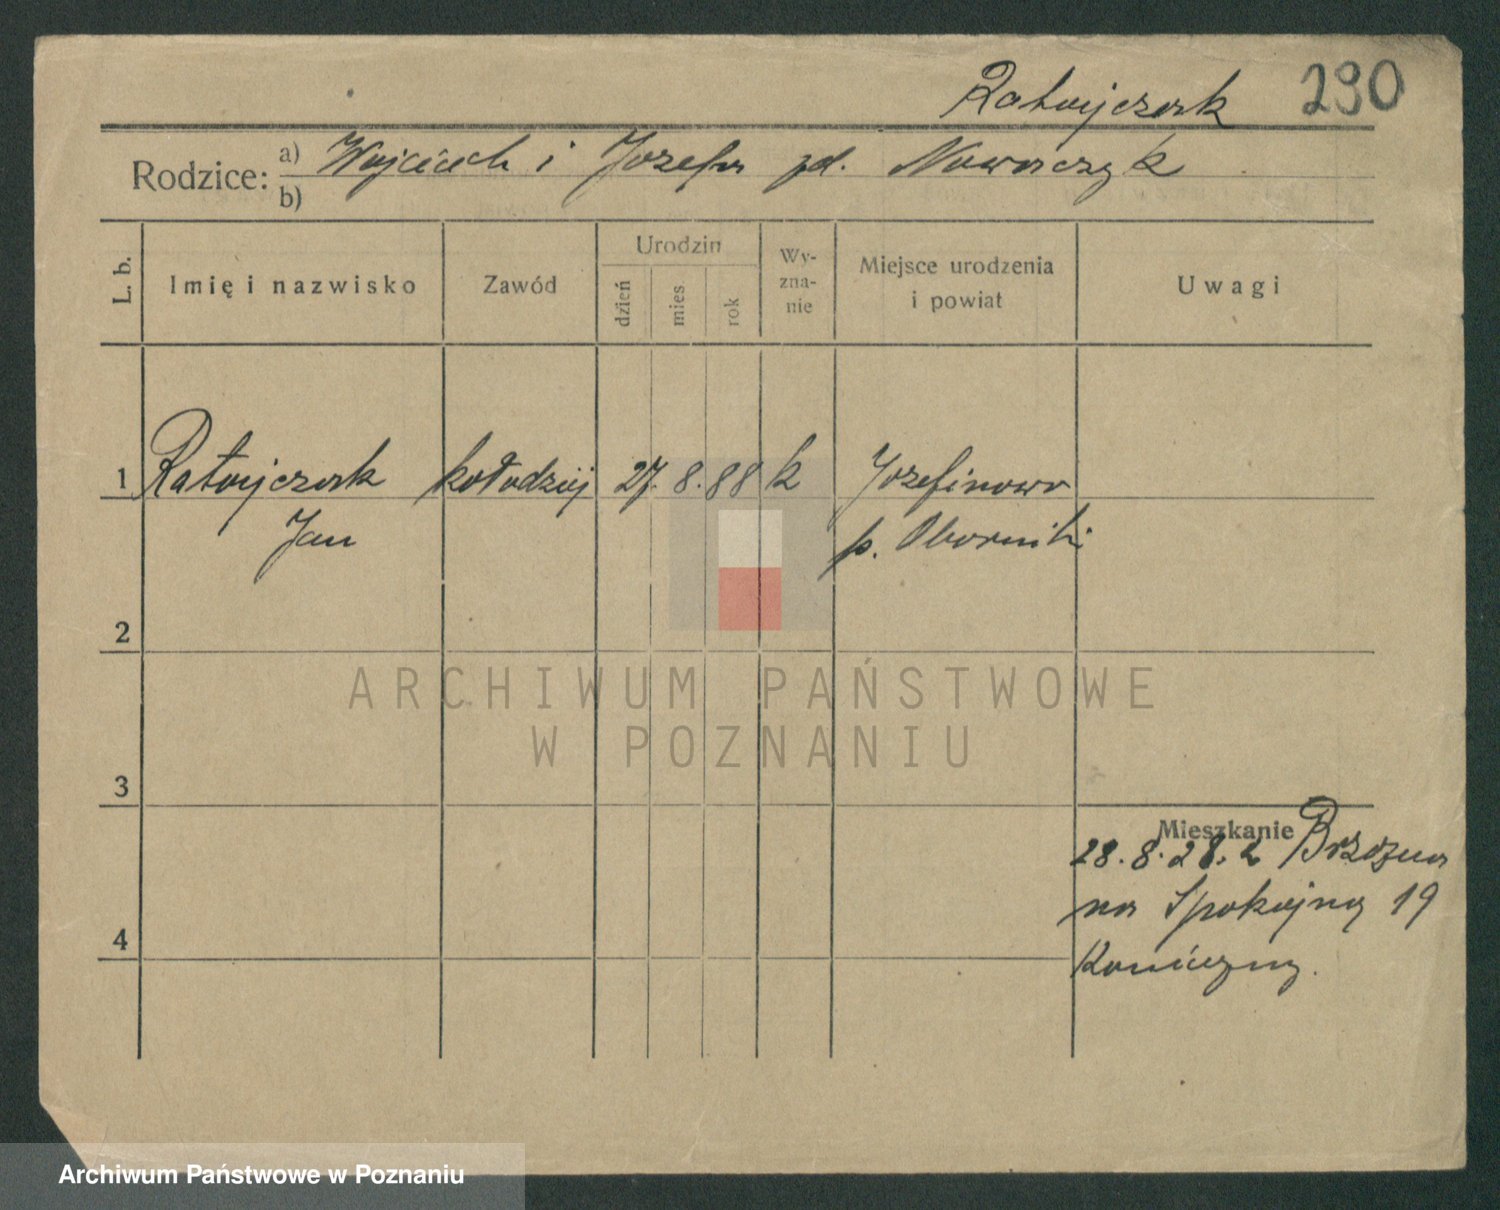 Ratajczak 290
Rodzice: a) Wojciech i Józefa zd. Nowaczyk
b)
L. b. Imię i nazwisko Zawód Urodzin dzień mies rok Wy-zna-nie Miejsce urodzenia i powiat Uwagi
1 Ratajczak kołodziej 27. 8. 88 k Józefinowo
Jan p. Oborniki
2
3
Mieszkanie
28. 8. 28. z Brzozna
na Spokojną 19
4
ARCHIWUM PAŃSTWOWE
W POZNANIU
Archiwum Państwowe w Poznaniu